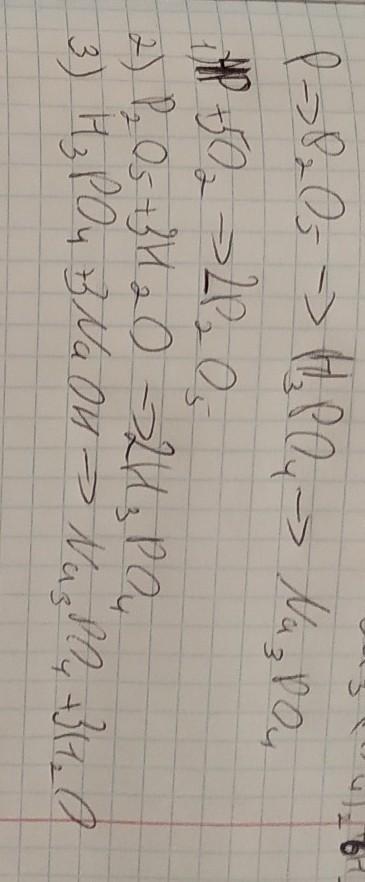 P → P₂O₅ → H₃PO₄ → Na₃PO₄
1) 4P + 5O₂ → 2P₂O₅
2) P₂O₅ + 3H₂O → 2H₃PO₄
3) H₃PO₄ + 3NaOH → Na₃PO₄ + 3H₂O